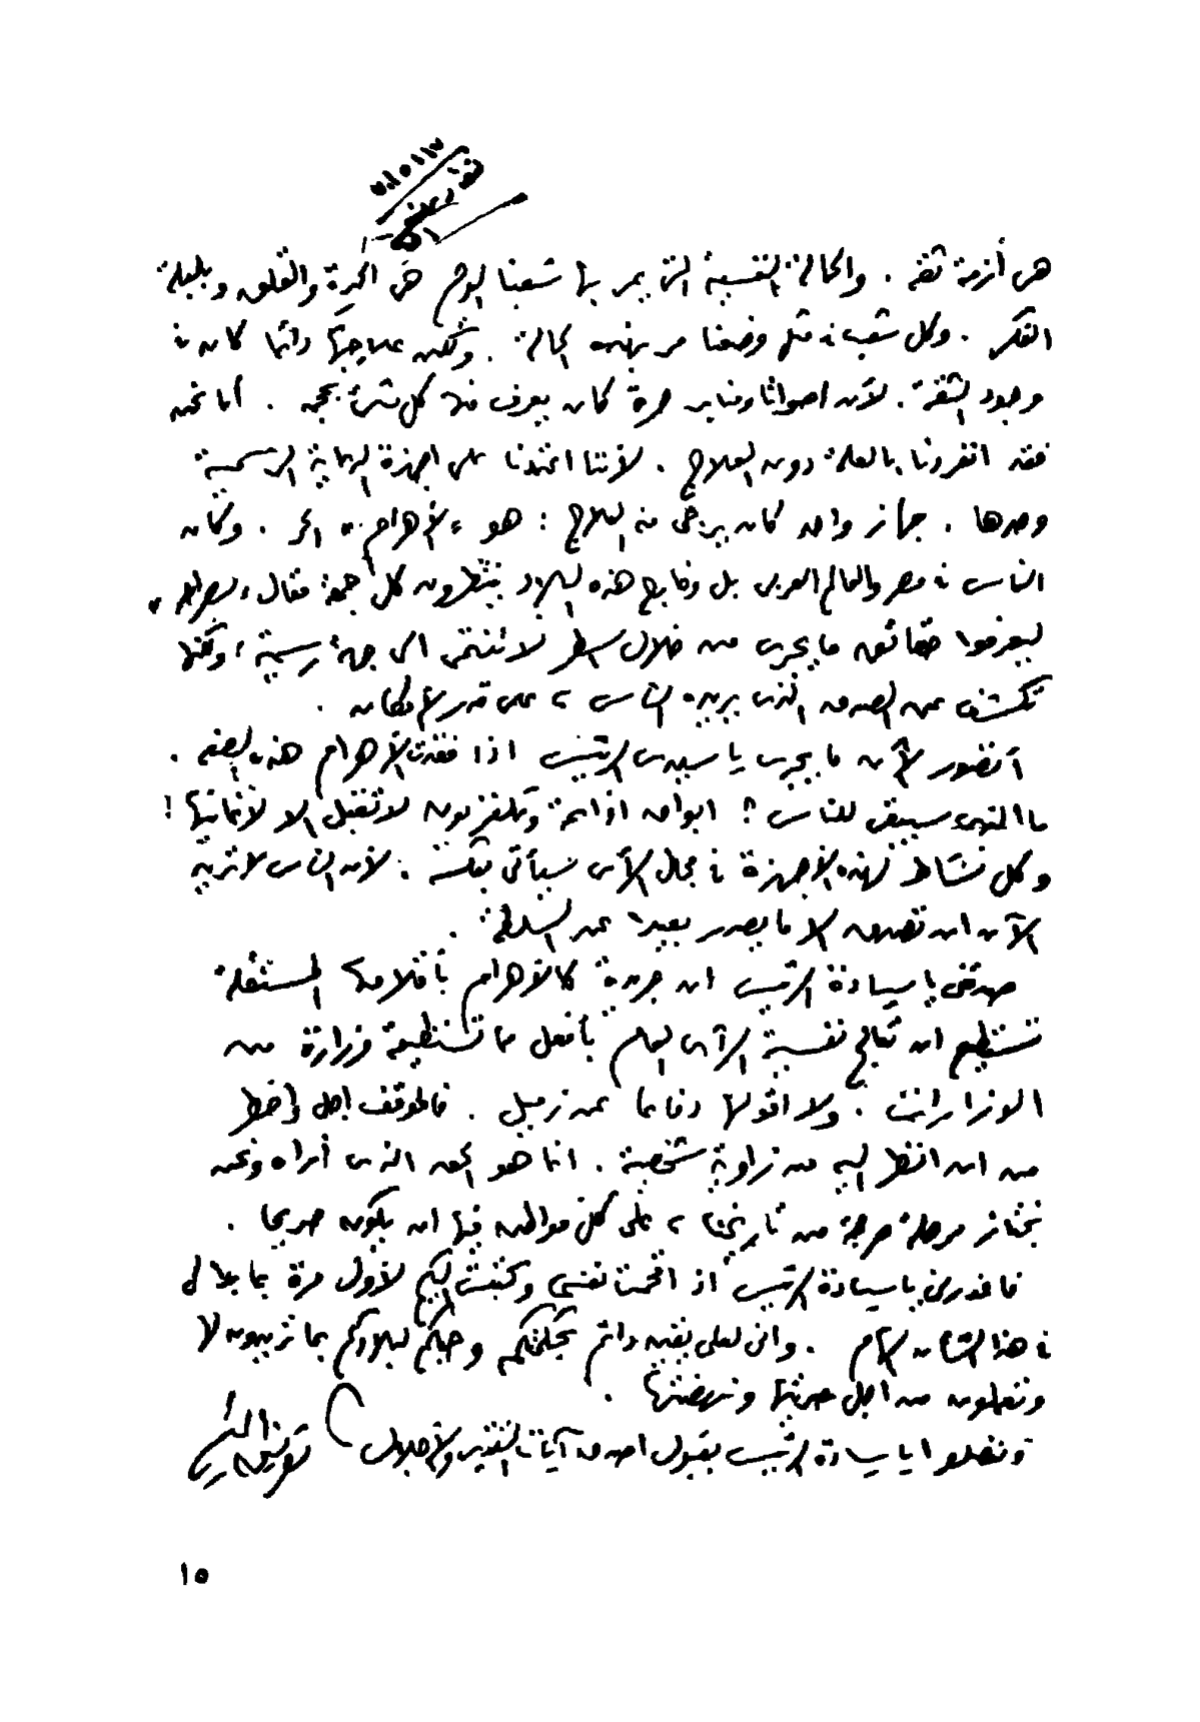 هى أزمة ثقة . والحالة النفسية التى يمر بها شعبنا اليوم هى الحيرة والقلق وبلبلة
الفكر . وكل شعب فى مثل وضعنا مر بهذه الحالة . ولكن علاجها دائما كان فى
وجود الثقة . لأن اصواتا ومنابر حرة كان يعرف منها كل شئ بحجمه . أما نحن
فقد انفردنا بالعلة دون العلاج . لأننا اعتمدنا على اجهزة الدعاية الرسمية
وحدها . جهاز واحد كان يرجى منه العلاج : هو «الأهرام» الحر . وكان
الناس فى مصر والعالم العربى بل وخارج هذه البلاد ينتظرون كل جمعة مقال «بصراحة»
ليعرفوا حقائق ما يجرى من خلال سطر لا تنتمى الى جهة رسمية ، ولكنها
تكشف عن الصدق الذى يريده الناس ، على قدر الامكان .
أتصور الآن ما يجرى يا سيدى الرئيس اذا فقدت الأهرام هذه الصفة .
ما الذى سيبقى للناس ؟ ابواق اذاعة وتلفزيون لا تقبل الا لأغانيها !
وكل نشاط لهذه الأجهزة فى مجال الرأى سيأتى بعكسه . لأن الناس لا تريد
الآن ان تصدق الا ما يصدر بعيدا عن السلطة .
صدقنى يا سيادة الرئيس ان جريدة كالأهرام بأقلامها المستقلة
تستطيع ان تعالج نفسية الرأى العام بأفعل مما تستطيعه وزارة من
الوزارات . ولا اقولها دفاعا عن زميل . فالموقف اجل وأخطر
من ان انظر اليه من زاوية شخصية . انما هو الحق الذى أراه ونحن
نجتاز مرحلة حرجة من تاريخنا ، على كل مواطن فيها ان يكون صريحا .
فاعذرنى يا سيادة الرئيس اذ اقحمت نفسى وكتبت اليكم لأول مرة بما بدا لى
فى هذا الشأن الهام . وانى لعلى يقين دائم بحكمتكم وحبكم لبلادكم بما تريدون لها
وتعملون من اجل حريتها ونهضتها .
وتفضلوا يا سيادة الرئيس بقبول اصدق آيات التقدير والأجلال
توفيق الحكيم
١٥